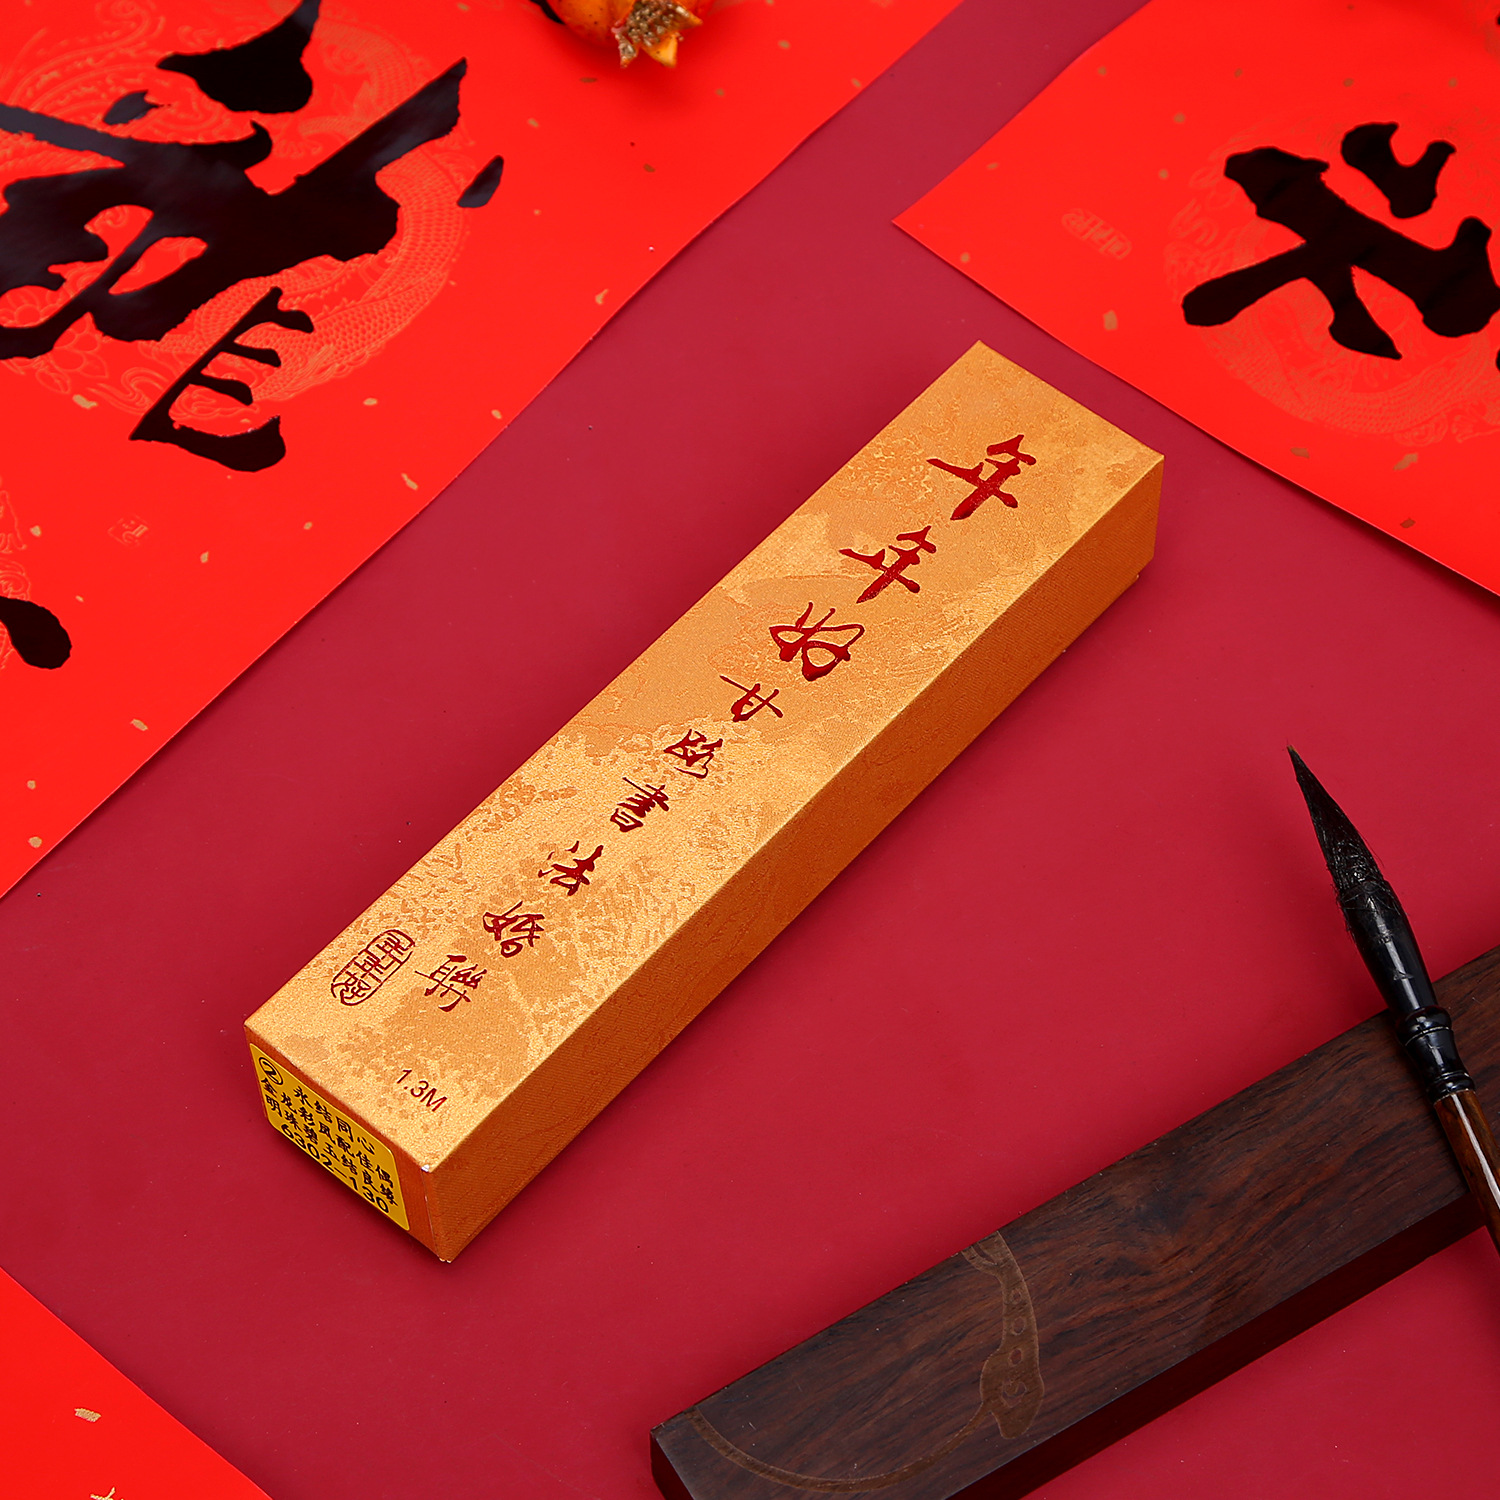 年年好
甘歐書法婚聯
年年好
1.3M
② 永结同心
金龙彩凤配佳偶
明珠碧玉结良缘
6302-130